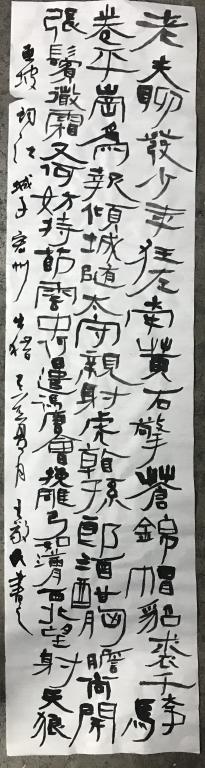 老夫聊發少年狂左牽黃右擎蒼錦帽貂裘千騎
卷平崗為報傾城隨太守親射虎看孫郎酒酣胸膽尚開
張鬢微霜又何妨持節雲中何日遣馮唐會挽雕弓如滿月西北望射天狼
江城子密州出獵